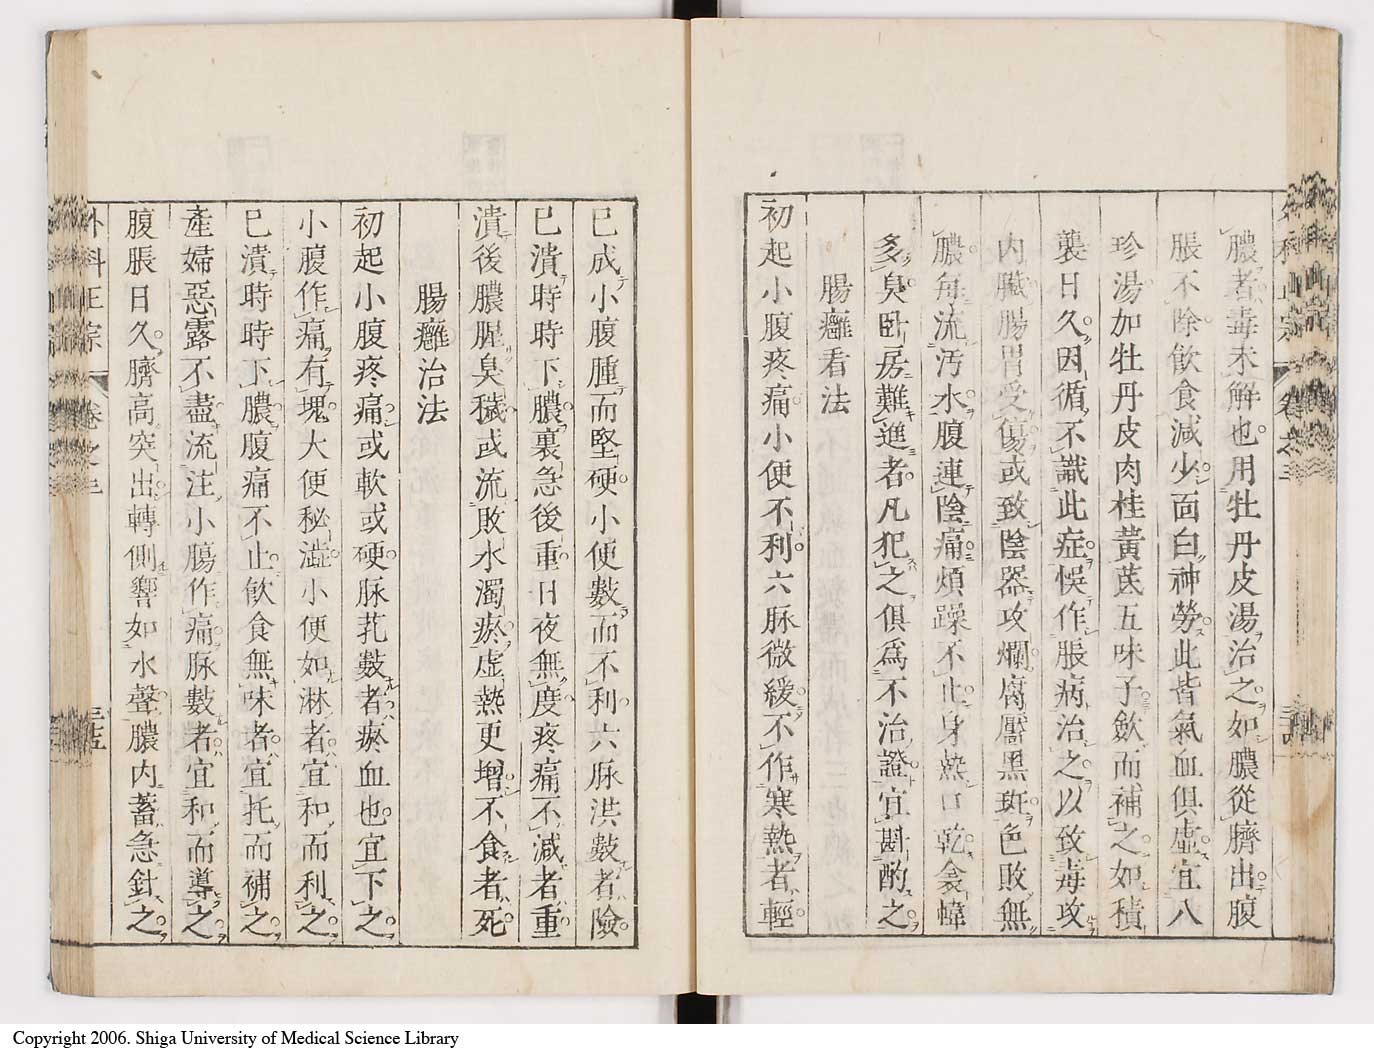 膿者毒未解也用牡丹皮湯治之如膿從臍出腹
脹不除飲食減少面白神勞此皆氣血俱虛宜八
珍湯加牡丹皮肉桂黃芪五味子斂而補之如積
襲日久因循不識此症悞作脹病治之以致毒攻
內臟腸胃受傷或致陰器攻爛腐黶黑斑色敗無
膿每流汚水腹連陰痛煩躁不止身熱口乾衾幃
多臭卧房難進者凡犯之俱爲不治證宜斟酌之
腸癰看法
初起小腹疼痛小便不利六脉微緩不作寒熱者輕
已成小腹腫而堅硬小便數而不利六脉洪數者險
已潰時時下膿裏急後重日夜無度疼痛不減者重
潰後膿腥臭穢或流敗水濁瘀虛熱更增不食者死
腸癰治法
初起小腹疼痛或軟或硬脉芤數者瘀血也宜下之
小腹作痛有塊大便秘澁小便如淋者宜和而利之
已潰時時下膿腹痛不止飲食無味者宜托而補之
產婦惡露不盡流注小腸作痛脉數者宜和而導之
腹脹日久臍高突出轉側響如水聲膿內蓄急針之
外科正宗 卷之三 三十五
Copyright 2006. Shiga University of Medical Science Library